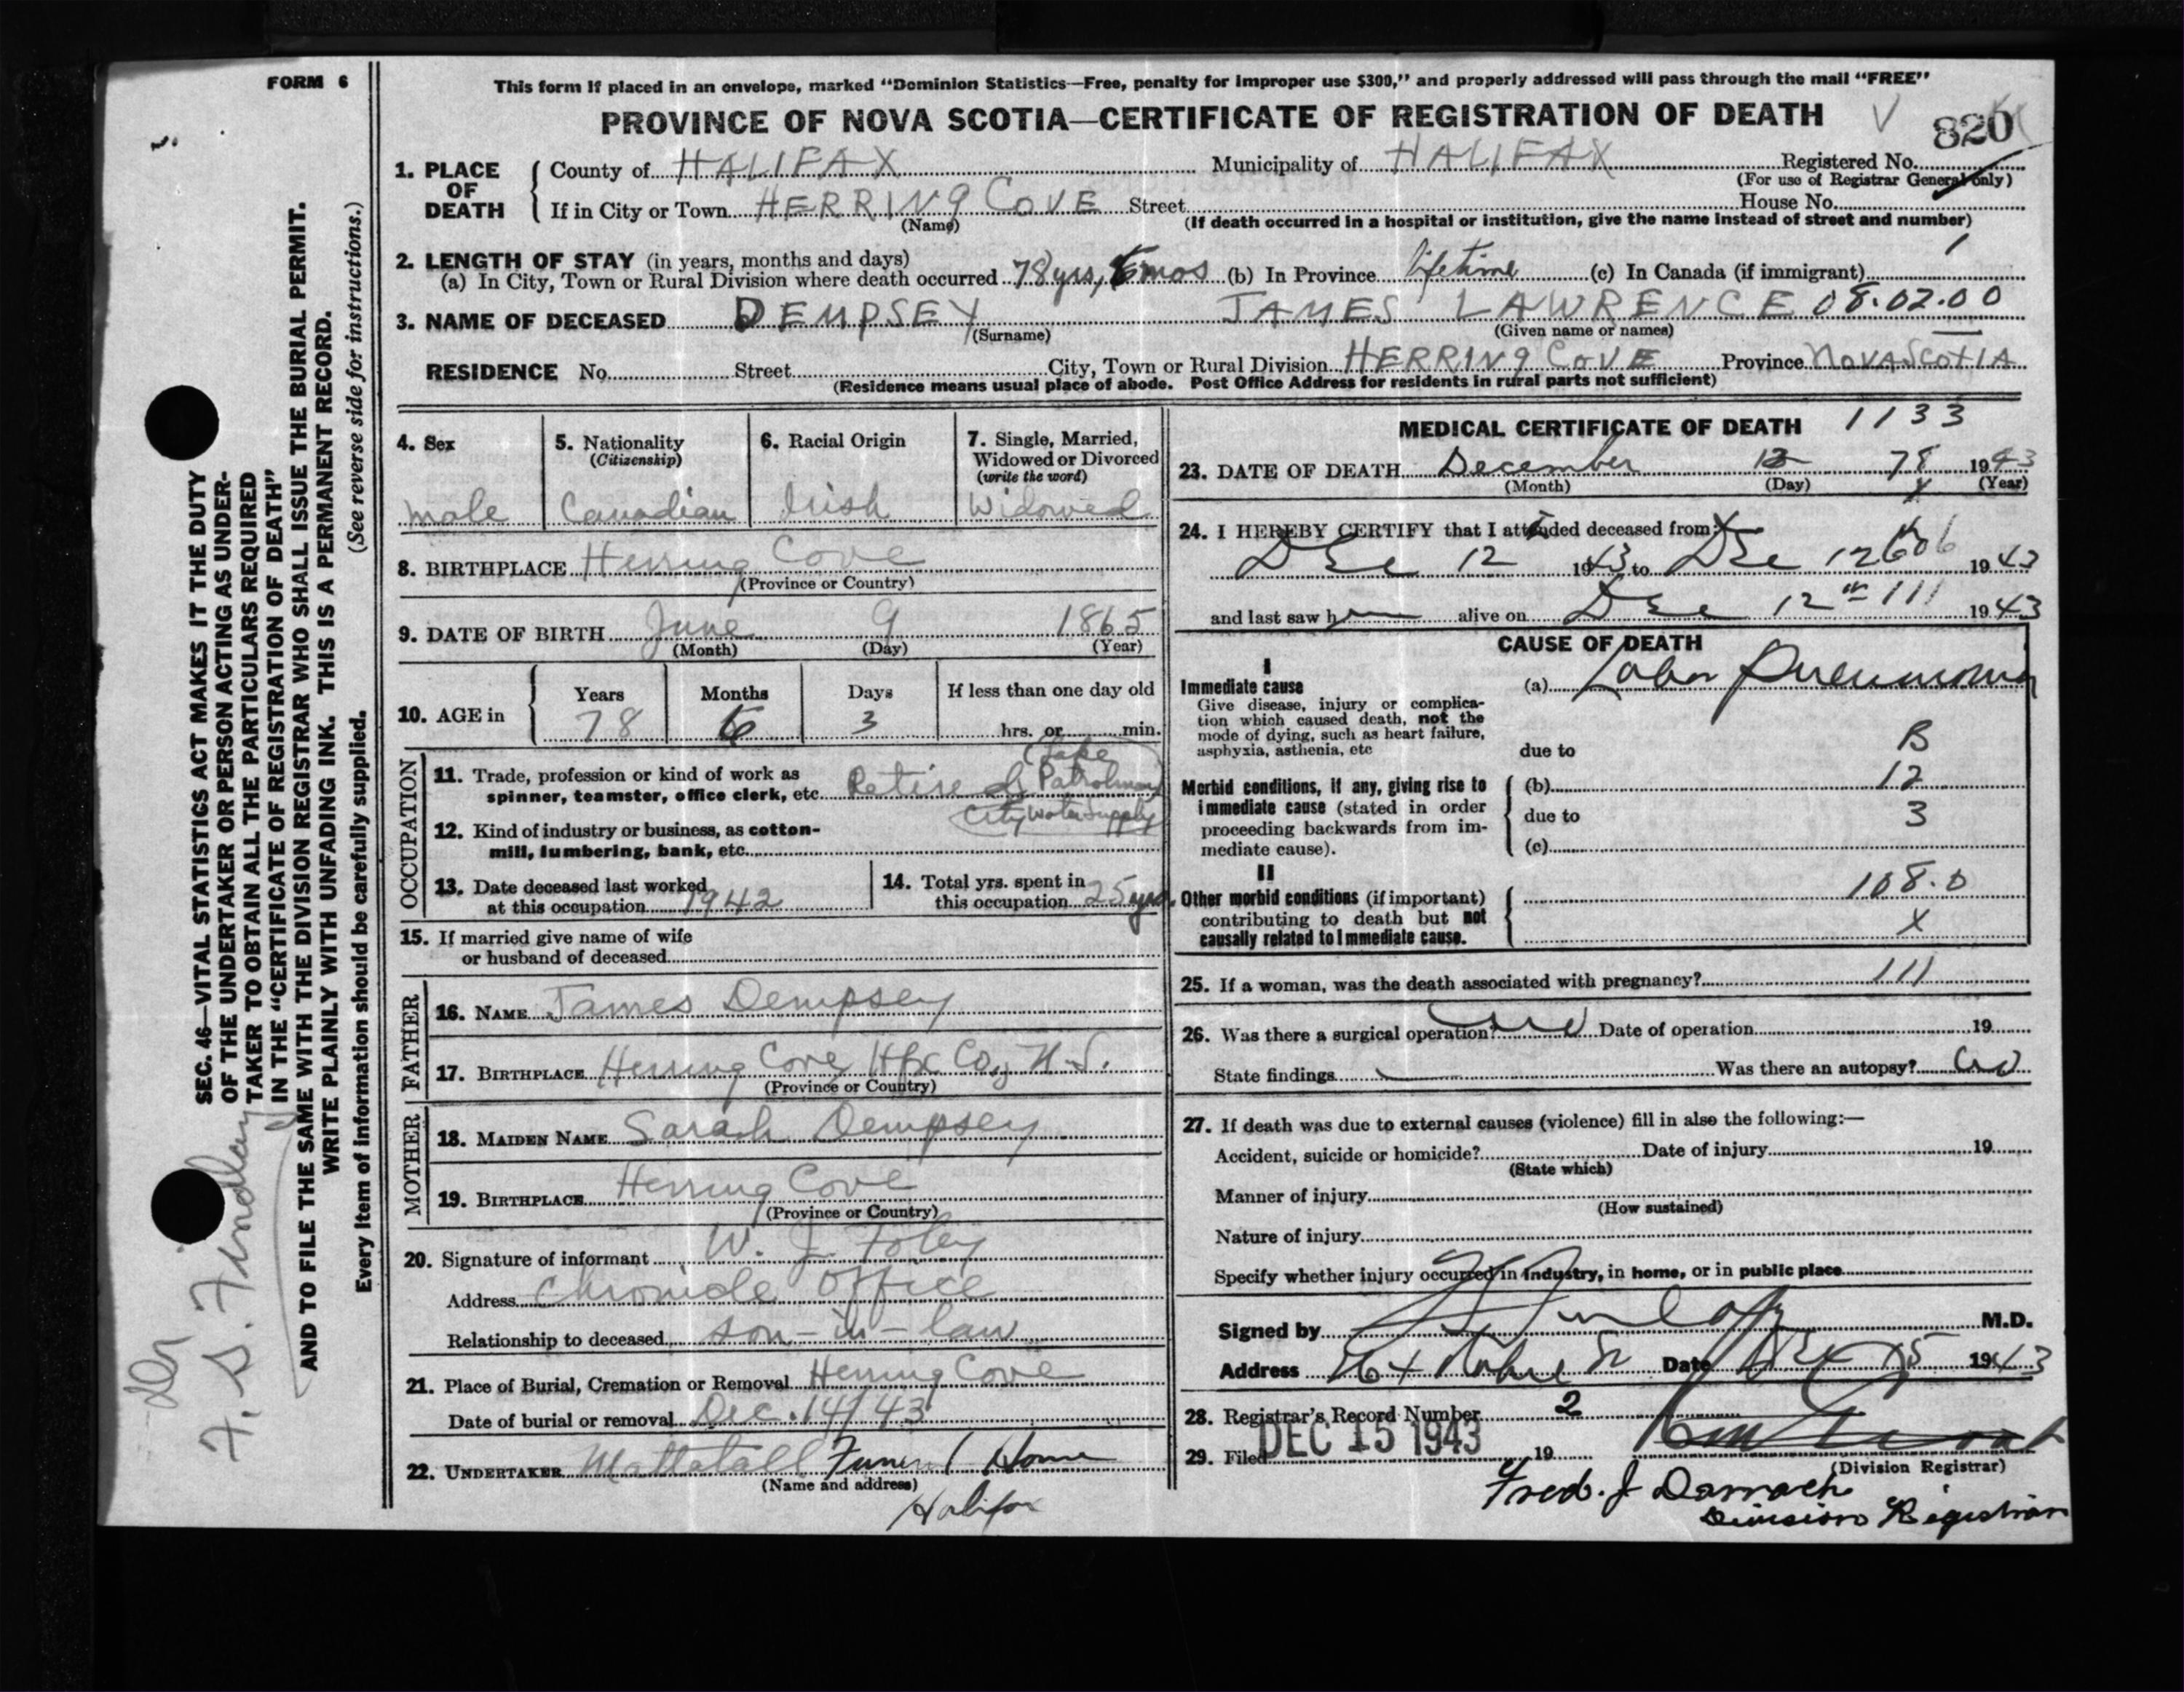 FORM 6
This form if placed in an envelope, marked "Dominion Statistics—Free, penalty for improper use $300," and properly addressed will pass through the mail "FREE"
PROVINCE OF NOVA SCOTIA—CERTIFICATE OF REGISTRATION OF DEATH
820
1. PLACE OF DEATH
County of HALIFAX Municipality of HALIFAX Registered No.
(For use of Registrar General only)
If in City or Town HERRING COVE Street House No.
(Name) (If death occurred in a hospital or institution, give the name instead of street and number)
2. LENGTH OF STAY (in years, months and days)
(a) In City, Town or Rural Division where death occurred 78 yrs, 6 mos (b) In Province lifetime (c) In Canada (if immigrant)
3. NAME OF DECEASED DEMPSEY JAMES LAWRENCE 08.02.00
(Surname) (Given name or names)
RESIDENCE No. Street City, Town or Rural Division HERRING COVE Province NOVA SCOTIA
(Residence means usual place of abode. Post Office Address for residents in rural parts not sufficient)
4. Sex
male
5. Nationality
(Citizenship)
Canadian
6. Racial Origin
Irish
7. Single, Married,
Widowed or Divorced
(write the word)
Widowed
8. BIRTHPLACE Herring Cove
(Province or Country)
9. DATE OF BIRTH June 9 1865
(Month) (Day) (Year)
10. AGE in
Years Months Days If less than one day old
78 6 3 hrs. or min.
OCCUPATION
11. Trade, profession or kind of work as
spinner, teamster, office clerk, etc. Retired (Lake Patrolman
City Water Supply
12. Kind of industry or business, as cotton-
mill, lumbering, bank, etc.
13. Date deceased last worked
at this occupation 1942
14. Total yrs. spent in
this occupation 25 yrs.
15. If married give name of wife
or husband of deceased
FATHER
16. NAME James Dempsey
17. BIRTHPLACE Herring Cove Hfx Co, N.S.
(Province or Country)
MOTHER
18. MAIDEN NAME Sarah Dempsey
19. BIRTHPLACE Herring Cove
(Province or Country)
20. Signature of informant W. J. Foley
Address Chronicle Office
Relationship to deceased son-in-law
21. Place of Burial, Cremation or Removal Herring Cove
Date of burial or removal Dec. 14/43
22. UNDERTAKER Mattatall Funeral Home
(Name and address)
Halifax
MEDICAL CERTIFICATE OF DEATH 1133
23. DATE OF DEATH December 12 78 1943
(Month) (Day) (Year)
24. I HEREBY CERTIFY that I attended deceased from:
Dec 12 1943 to Dec 12 1943
and last saw h alive on Dec 12 111 1943
CAUSE OF DEATH
I
Immediate cause
Give disease, injury or complica-
tion which caused death, not the
mode of dying, such as heart failure,
asphyxia, asthenia, etc
(a) Lobar Pneumonia
due to B
Morbid conditions, if any, giving rise to
immediate cause (stated in order
proceeding backwards from im-
mediate cause).
(b) 12
due to 3
(c)
II
Other morbid conditions (if important)
contributing to death but not
causally related to immediate cause.
108.0
X
25. If a woman, was the death associated with pregnancy? 111
26. Was there a surgical operation? no Date of operation 19
State findings Was there an autopsy? no
27. If death was due to external causes (violence) fill in also the following:—
Accident, suicide or homicide? Date of injury 19
(State which)
Manner of injury
(How sustained)
Nature of injury
Specify whether injury occurred in industry, in home, or in public place
Signed by M.D.
Address Date Dec 15 1943
28. Registrar's Record Number 2
29. Filed DEC 15 1943 19
(Division Registrar)
Fred. J Darrach
Division Registrar
SEC. 46—VITAL STATISTICS ACT MAKES IT THE DUTY
OF THE UNDERTAKER OR PERSON ACTING AS UNDER-
TAKER TO OBTAIN ALL THE PARTICULARS REQUIRED
IN THE "CERTIFICATE OF REGISTRATION OF DEATH"
AND TO FILE THE SAME WITH THE DIVISION REGISTRAR WHO SHALL ISSUE THE BURIAL PERMIT.
WRITE PLAINLY WITH UNFADING INK. THIS IS A PERMANENT RECORD.
Every item of information should be carefully supplied. (See reverse side for instructions.)
F. S. Findlay